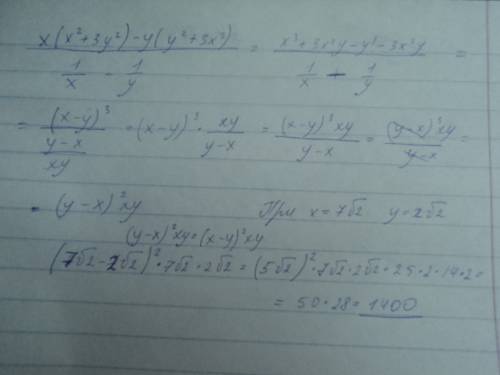 (x(x²+3y²)-y(y²+3x²))/(1/x - 1/y) = (x³+3x²y-y³-3x²y)/(1/x - 1/y) =
= (x-y)³/((y-x)/xy) = (x-y)³ · xy/(y-x) = (x-y)³xy/(y-x) = (y-x)³xy/(y-x) =
= (y-x)²xy При x=7√2 y=2√2
(y-x)²xy=(x-y)²xy
(7√2-2√2)²·7√2·2√2=(5√2)²·7√2·2√2=25·2·14·2=
= 50·28=1400